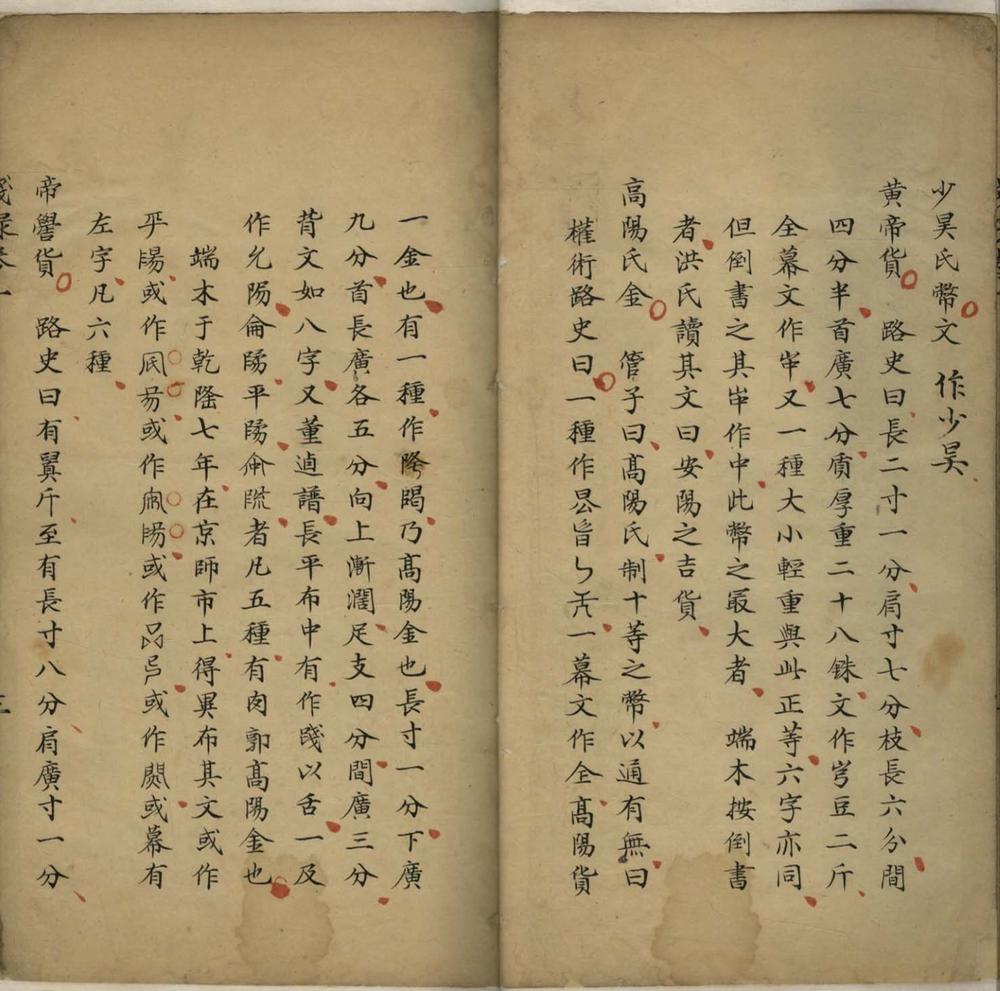 少昊氏幣文 作少昊
黃帝貨 路史曰長二寸一分肩寸七分枝長六分間
四分半首廣七分质厚重二十八銖文作 豆二斤
全幕文作 又一種大小輕重與此正等六字亦同
但倒書之其 作中此幣之最大者 端木按倒書
者洪氏讀其文曰安陽之吉貨
高陽氏金 管子曰高陽氏制十等之幣以通有無曰
權術路史曰一種作 一幕文作全高陽貨
一金也有一種作 乃高陽金也長寸一分下廣
九分首長廣各五分向上漸濶足支四分間廣三分
背文如八字又董逌譜長平布中有作 以舌一及
作 平 者凡五種有肉郭高陽金也
端木于乾隆七年在京師市上得異布其文或作
或作 或作 或作 或作 或幕有
左字凡六種
帝嚳貨 路史曰有 斤至有長寸八分肩廣寸一分